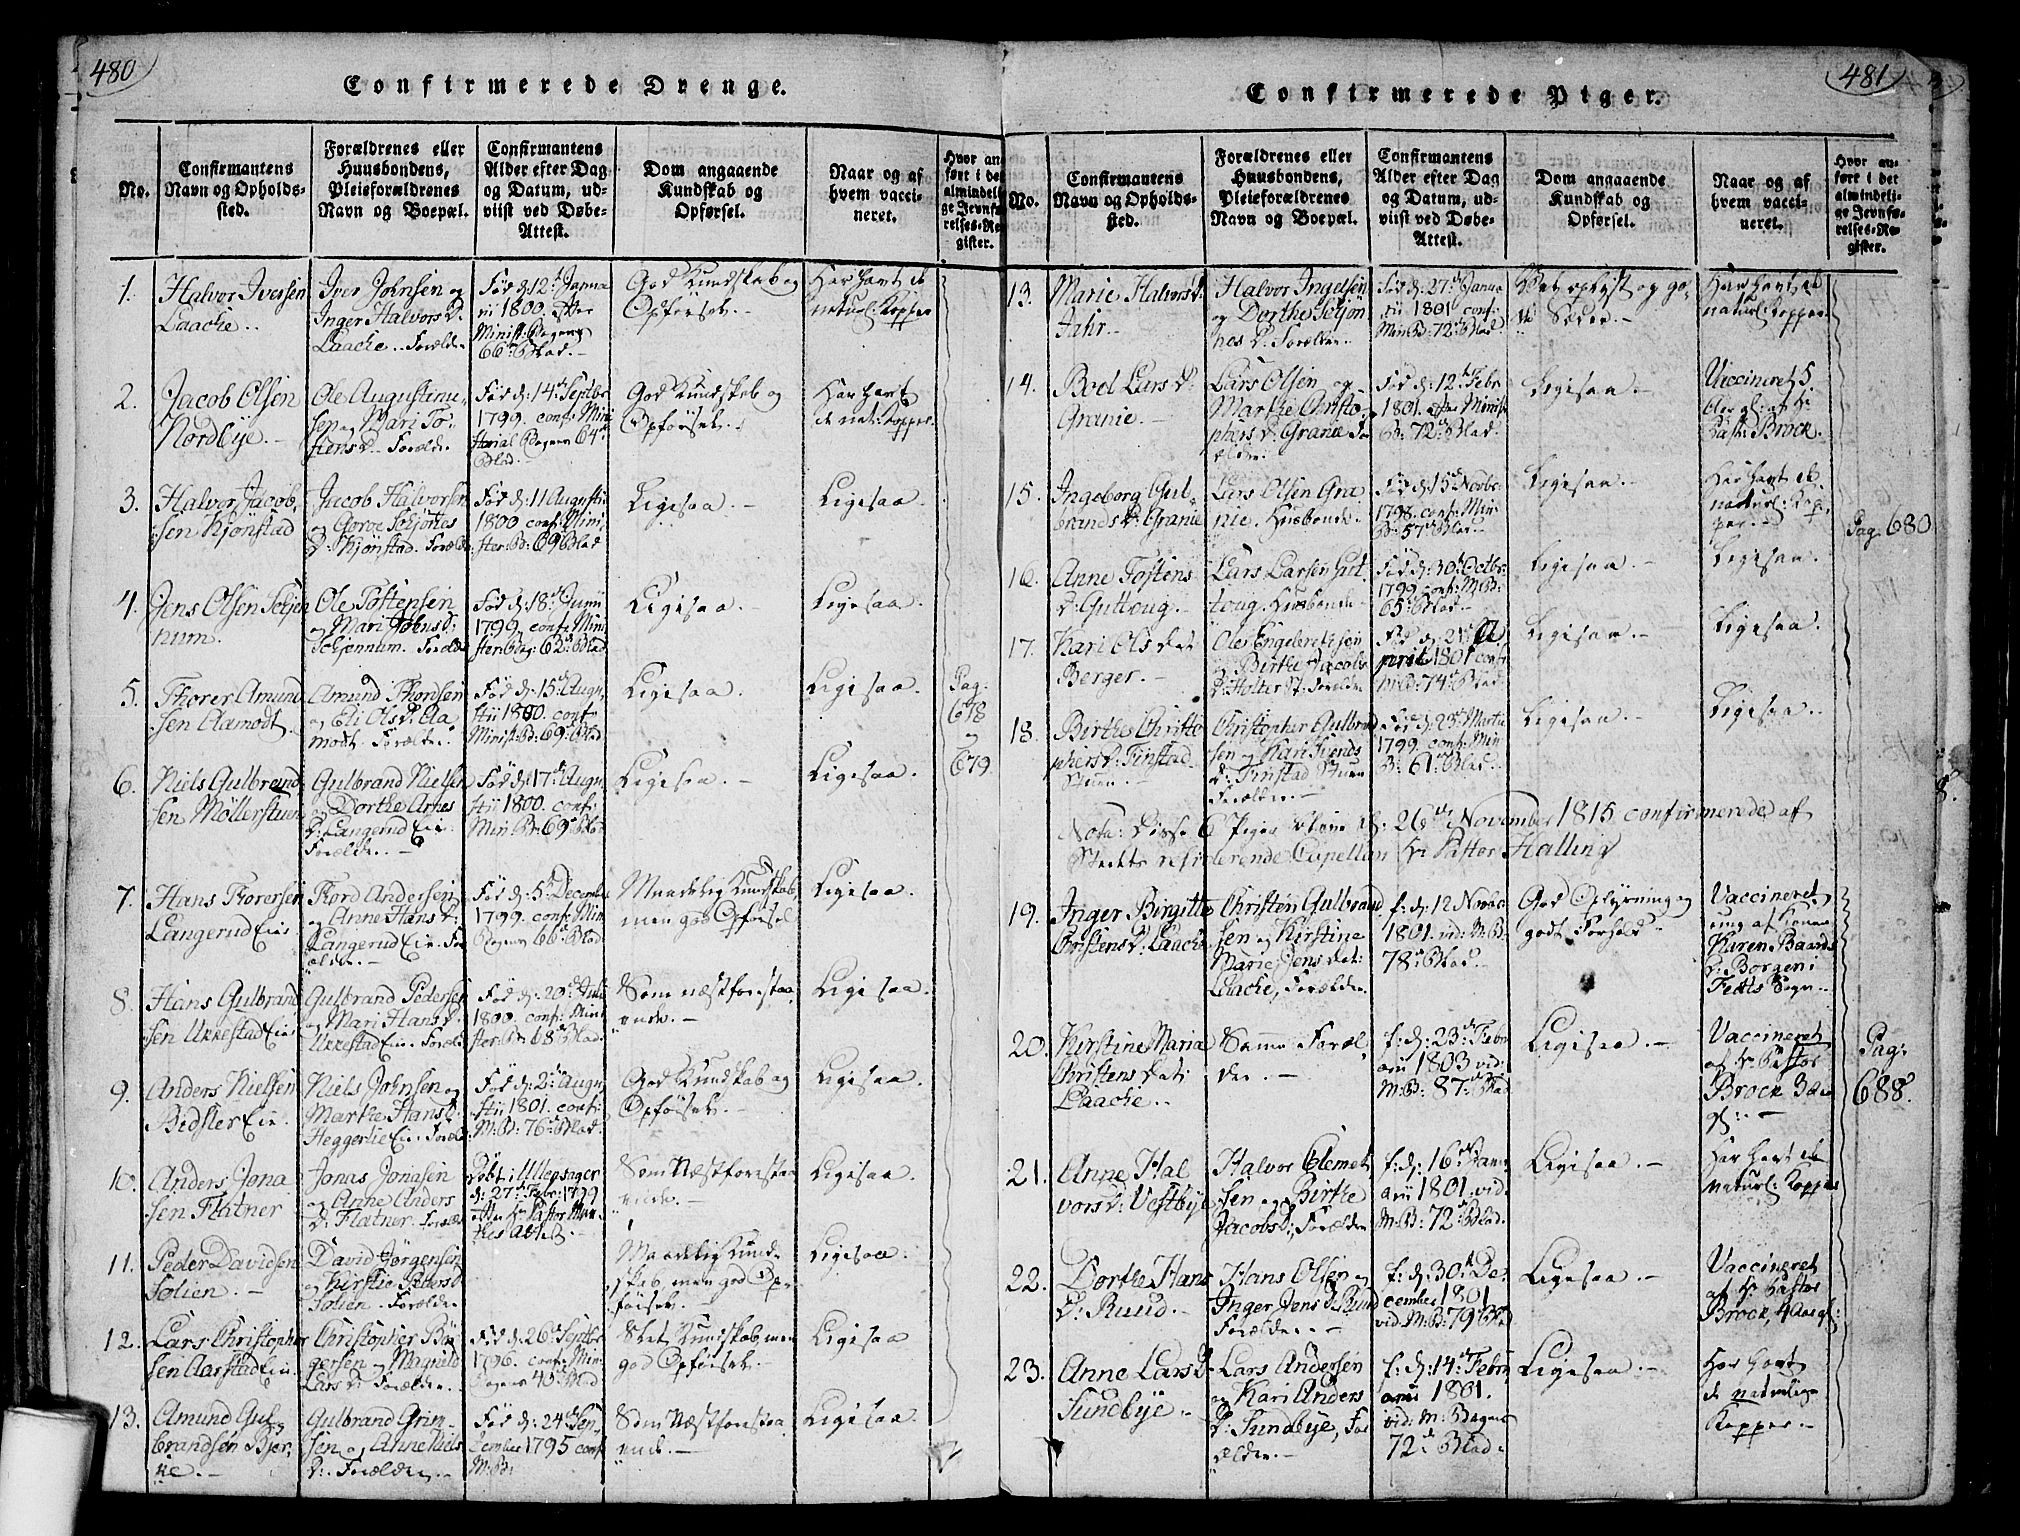 480
Confirmerede Drenge.
No.
Confirmantens
Navn og Opholds-
sted.
Forældrenes eller
Huusbondens,
Pleieforældrenes
Navn og Boepæl.
Confirmantens
Alder efter Dag
og Datum, ud-
viist ved Døbe-
Attest.
Dom angaaende
Kundskab og
Opførsel.
Naar og af
hvem vacci-
neret.
Hvor an-
ført i det
almindeli-
ge Jevnfø-
relses-Re-
gister.
1.
Halvor Iversen
Laache..
Iver Johnsen og
Inger Halvors D.
Laache.. Forældre
Fød d: 12t Janua
rii 1800. efter
Minist: Bogens
66de Blad.-
God Kundskab og
Opførsel.-
Har havt de
naturl: Kopper
2.
Jacob Olsen
Nordbye.-
Ole Augustinu-
sen og Mari To-
stens D. Forældre
Fød d: 14de Septbr
1799. conf: Mini
sterial Bogens 64de
Blad.-
God Kundskab og
Opførsel.
Har havt
de nat: Kopper
3.
Halvor Jacob-
sen Kjønstad
Jacob Halvorsen
og Goroe Schjøttes
D: Kjønstad. Forældre
Fød d: 11 Augustii
1800 conf: Mini
ster: B: 69 Blad
Ligesaa.-
Ligesaa
4.
Jens Olsen Schjen
num.
Ole Tostensen
og Mari Johns D:
Schjennum. Forældre
Fød d: 18de Junii
1799. conf: Mini
ster: Bog: 62de Blad.
Ligesaa.-
Ligesaa.
5.
Thorer Amund
sen Aamodt.
Amund Thordsen
og Eli Ols D. Aa
modt. Forældre.
Fød d: 15de Augu
stii 1800. conf:
Minist: B: 69. Blad.
Ligesaa.
Ligesaa.
Pag.
678
og
679
6.
Niels Gulbrand
sen Möllerstuen
Gulbrand Nielsen
og Dorthe Arnes
D: Langerud Eie.
Forældre.-
Fød d: 17de Augu
stii 1800. conf:
Min: B: 69de Blad
Ligesaa.-
Ligesaa.
7.
Hans Thorersen
Langerud Eie.
Thord Andersen
og Anne Hans D:
Langerud Eie. For
ældre.-
Fød d: 5t Decembr
1799. conf: Min:
Bogens 66de Blad.
Maadelig Kundskab,
men god Opførsel
Ligesaa.
8.
Hans Gulbrand
sen Ukkestad Eie.
Gulbrand Peders
og Mari Hans D.
Ukkestad Eie. Forældre
Fød d: 20de Julii
1800. conf: Mini
ster: B: 68de Blad.
Som næstforestaa
ende.-
Ligesaa.
9.
Anders Nielsen
Bidsler Eie.
Niels Johnsen og
Marthe Hans D:
Heggerlie Eie. Forældre
Fød d: 2de Augu
stii 1801. conf:
M: B: 76de Blad.
God Kundskab og
Opførsel.-
Ligesaa.
10.
Anders Jona
sen Flatner
Jonas Jonasen
og Anne Anders
D: Flatner. Forældre
Døbt i Ullensager
d: 27de Febr: 1799
efter Hr Pastor Mun
thes Attest.
Som Næstforestaa
ende.-
Ligesaa.
11.
Peder Davidsen
Solien.-
David Jørgensen
og Kirstie Peders D
Solien. Forældre
Maadelig Kund
skab, men god Op
førsel.-
Ligesaa.
12.
Lars Christopher
sen Aarstad Eie.
Christopher Bür
gersen og Magnild
Lars D: Forældre.
Fød d: 26de Septbr
1796. conf: Min:
Bogens 40de Blad
Slet Kundskab, men
god Opførsel.
Ligesaa
13.
Amund Gul
brandsen Bjer
ke.-
Gulbrand Grim
sen og Anne Niels
D: Forældre.
Fød d: 24de Sep
tember 1795 conf
M: B:
Som Næstforestaa
ende.-
Ligesaa.
481
Confirmerede Piger.
No.
Confirmantens
Navn og Opholds-
sted.
Forældrenes eller
Huusbondens,
Pleieforældrenes
Navn og Boepæl.
Confirmantens
Alder efter Dag
og Datum, ud-
viist ved Døbe-
Attest.
Dom angaaende
Kundskab og
Opførsel.
Naar og af
hvem vacci-
neret.
Hvor an-
ført i det
almindeli-
ge Jevnfø-
relses-Re-
gister.
13.
Marie Halvors D:
Jahr.
Halvor Ingelsen
og Dorthe Schjön
nes D. Forældre.
Fød d: 27de Janua
rii 1801 conf:
Min: B: 72de Blad
Vel oplyst og go-
de Sæder.-
Har havt de
naturl: Kopper
14.
Boel Lars D:
Granie.-
Lars Olsen og
Marthe Christo-
phers D. Granie For
ældre.
Fød d: 12te Febr
1801. efter Minist
B: 72de Blad.
Ligesaa.-
Vaccineret 5.
Aar gl: af Hr
Past: Brock.
15.
Ingeborg Gul-
brands D: Granie
Lars Olsen Gra
nie, Husbonde.-
Fød d: 15de Novbr
1798. conf: Min:
B: 57de Blad
Ligesaa.-
Har havt de
naturl: Kop
per.
Pag. 680
16.
Anne Tostens
D: Guttoug.-
Lars Larsen Gut
toug. Husbonde
Fød d: 30te Octbr
1799. conf: M: B:
65de Blad.-
Ligesaa.-
Ligesaa.
17.
Kari Ols Dat
Berger.-
Ole Engebretsen
og Birthe Jacobs
D: Holter St: Forældre
Fød d: 21de A
pril 1801 conf:
M: B: 74de Blad.
Ligesaa.-
Ligesaa.
18.
Birthe Christo
phers D: Tinstad
Stuen.-
Christopher Gulbrand
sen og Kari Svends
D: Tinstad Stuen
Forældre.-
Fød d: 23de Martii
1799. conf: Min:
B: 61de Blad.-
Ligesaa.-
Ligesaa.
Nota: Disse 6 Piger bleve d: 26de November 1815 confirmerede af
Stedets residerende Capellan Hr Pastor Halling
19.
Inger Birgitte
Christens D: Laache
Christen Gulbrand
sen og Kirstine
Marie Jens Dat:
Laache, Forældre.
f: d: 12 Novbr
1801. vid: M: B:
78de Blad.-
God Oplysning og
godt Forhold.-
Vaccineret
ung af Kone
Karen Baards
D: Borgen i
Fetts Sogn.-
20.
Kirstine Maria
Christens Dat:
Laache.-
Samme Foræl
dre.-
f: d: 23de Febr
arii 1803 vid:
M: B: 87de Blad
Ligesaa.-
Vaccineret
af Hr Pastor
Brock 3 Aar
gl:.-
Pag:
688.
21.
Anne Hal
vors D: Vestbye
Halvor Clemet
sen og Birthe
Jacobs D: Forældre
f: d: 16de Janu
arii 1801. vid.
M: B: 72de Blad.
Ligesaa.-
Har havt de
naturl: Kopper
22.
Dorthe Hans
D: Ruud.-
Hans Olsen og
Inger Jens D: Ruud
Forældre.-
f: d: 30te De
cember 1801
vid: M: B: 79de Blad
Ligesaa.-
Vaccineret
af Hr Pastor
Brock, 4 Aar gl:
23.
Anne Lars D.
Sundbye.-
Lars Andersen
og Kari Anders
D: Sundbye, For
ældre.-
f: d: 14de Febru
arii 1801.
vid: M: Bogens
72de Blad.
Ligesaa.-
Har havt
de naturlige
Kopper.-